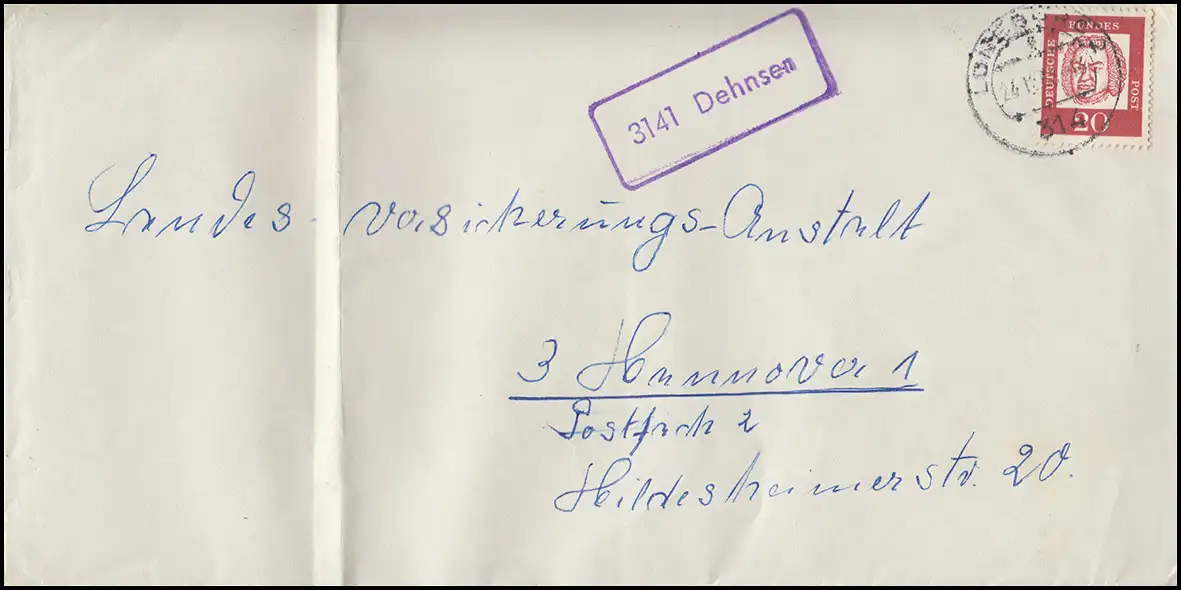 3141 Dehnsen
DEUTSCHE BUNDES POST
20
314
Landes-Versicherungs-Anstalt
3 Hannover 1
Postfach 2
Hildesheimerstr. 20.